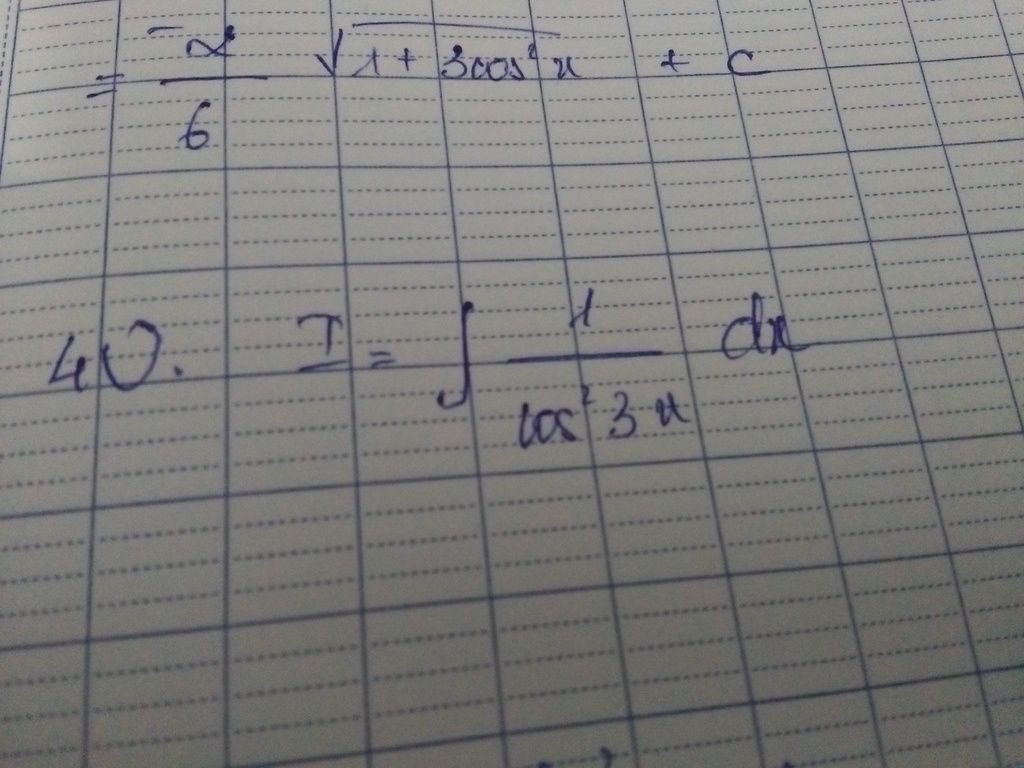 = -2/6 √(1 + 3cos² x) + C
40. I = ∫ 1/(cos² 3x) dx